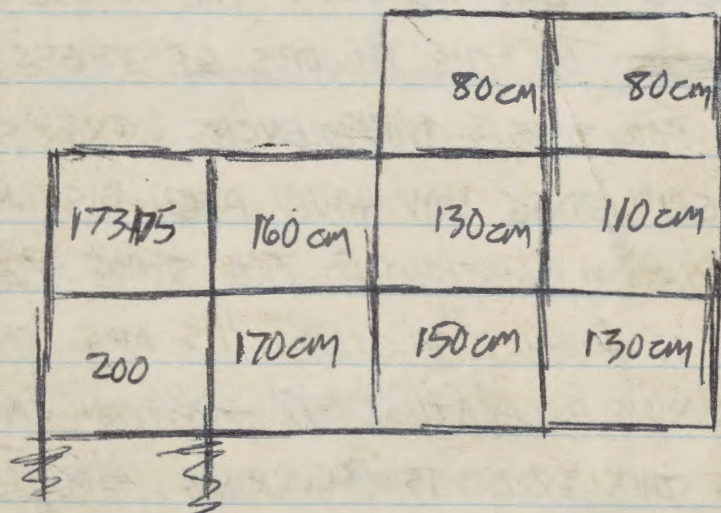 80cm 80cm
173175 160cm 130cm 110cm
200 170cm 150cm 130cm